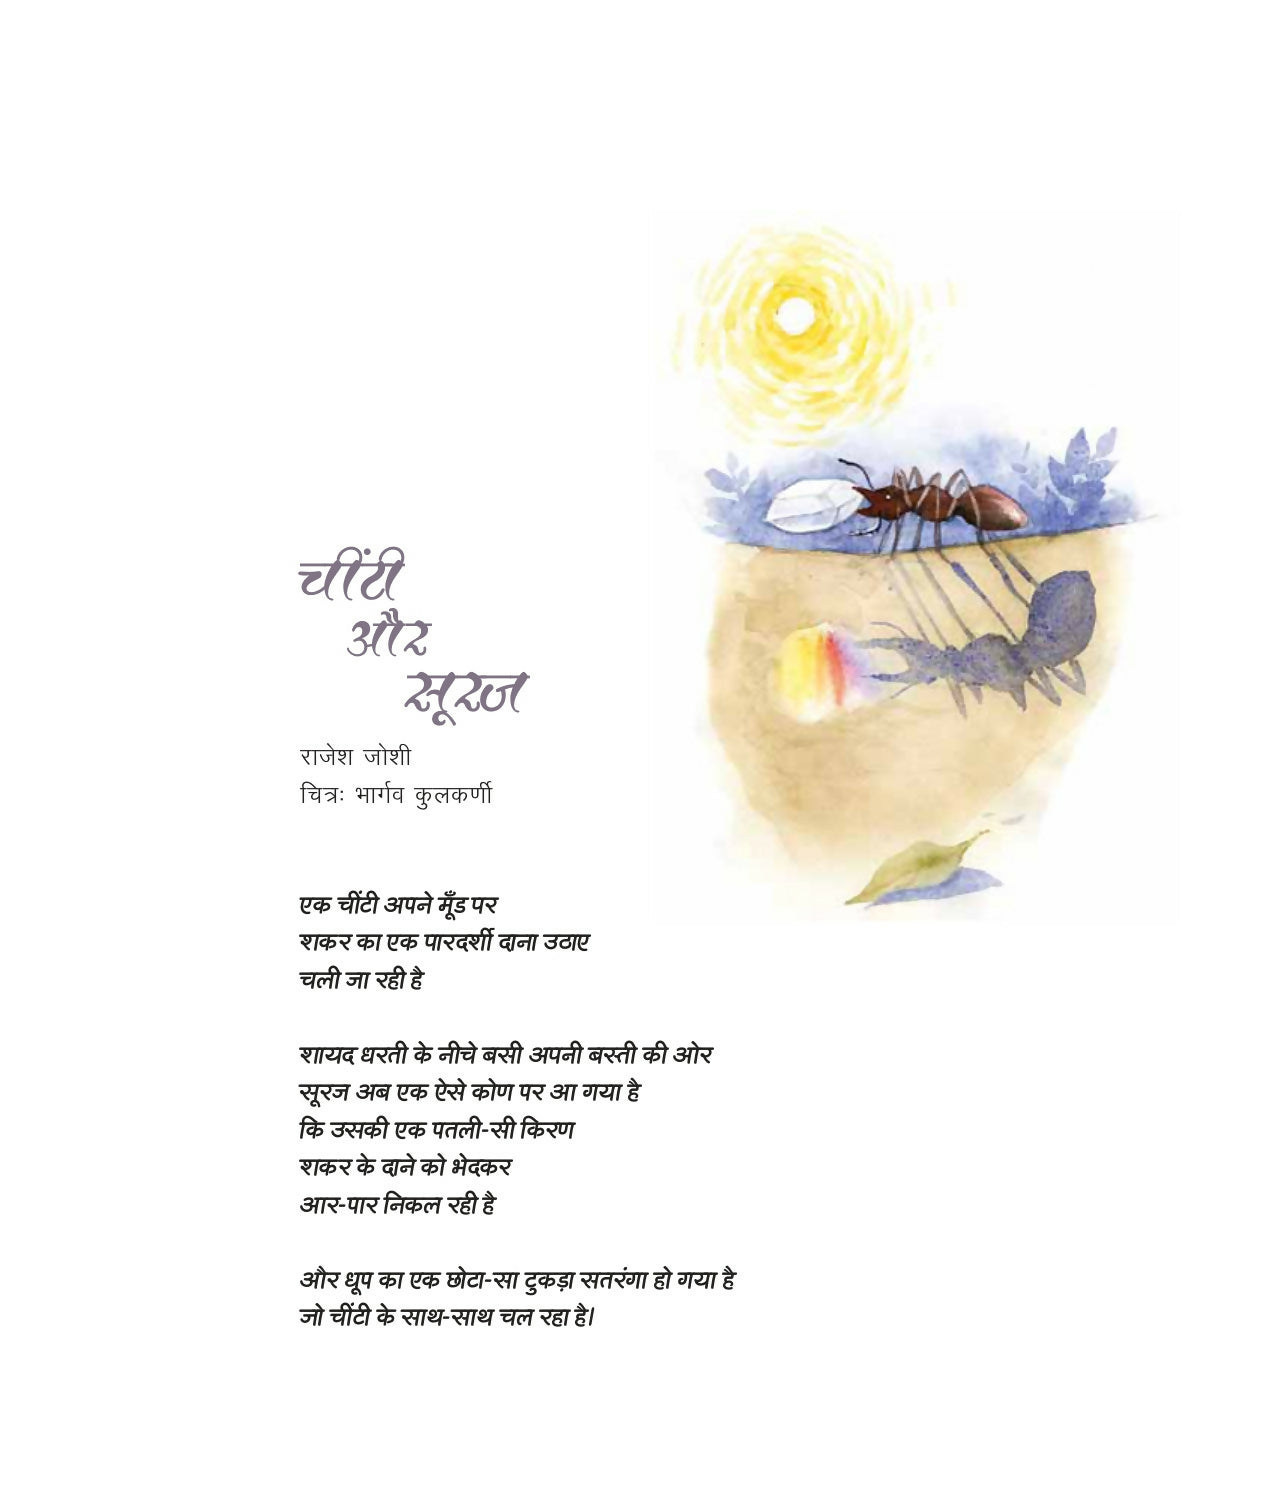 चींटी
और
सूरज
राजेश जोशी
चित्रः भार्गव कुलकर्णी
एक चींटी अपने मूँड पर
शकर का एक पारदर्शी दाना उठाए
चली जा रही है
शायद धरती के नीचे बसी अपनी बस्ती की ओर
सूरज अब एक ऐसे कोण पर आ गया है
कि उसकी एक पतली-सी किरण
शकर के दाने को भेदकर
आर-पार निकल रही है
और धूप का एक छोटा-सा टुकड़ा सतरंगा हो गया है
जो चींटी के साथ-साथ चल रहा है।